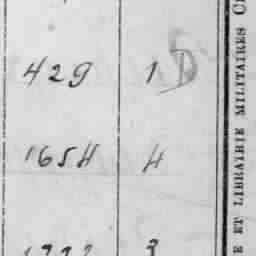 429 1 D
1654 4
3
E ET LIBRAIRIE MILITAIRES C